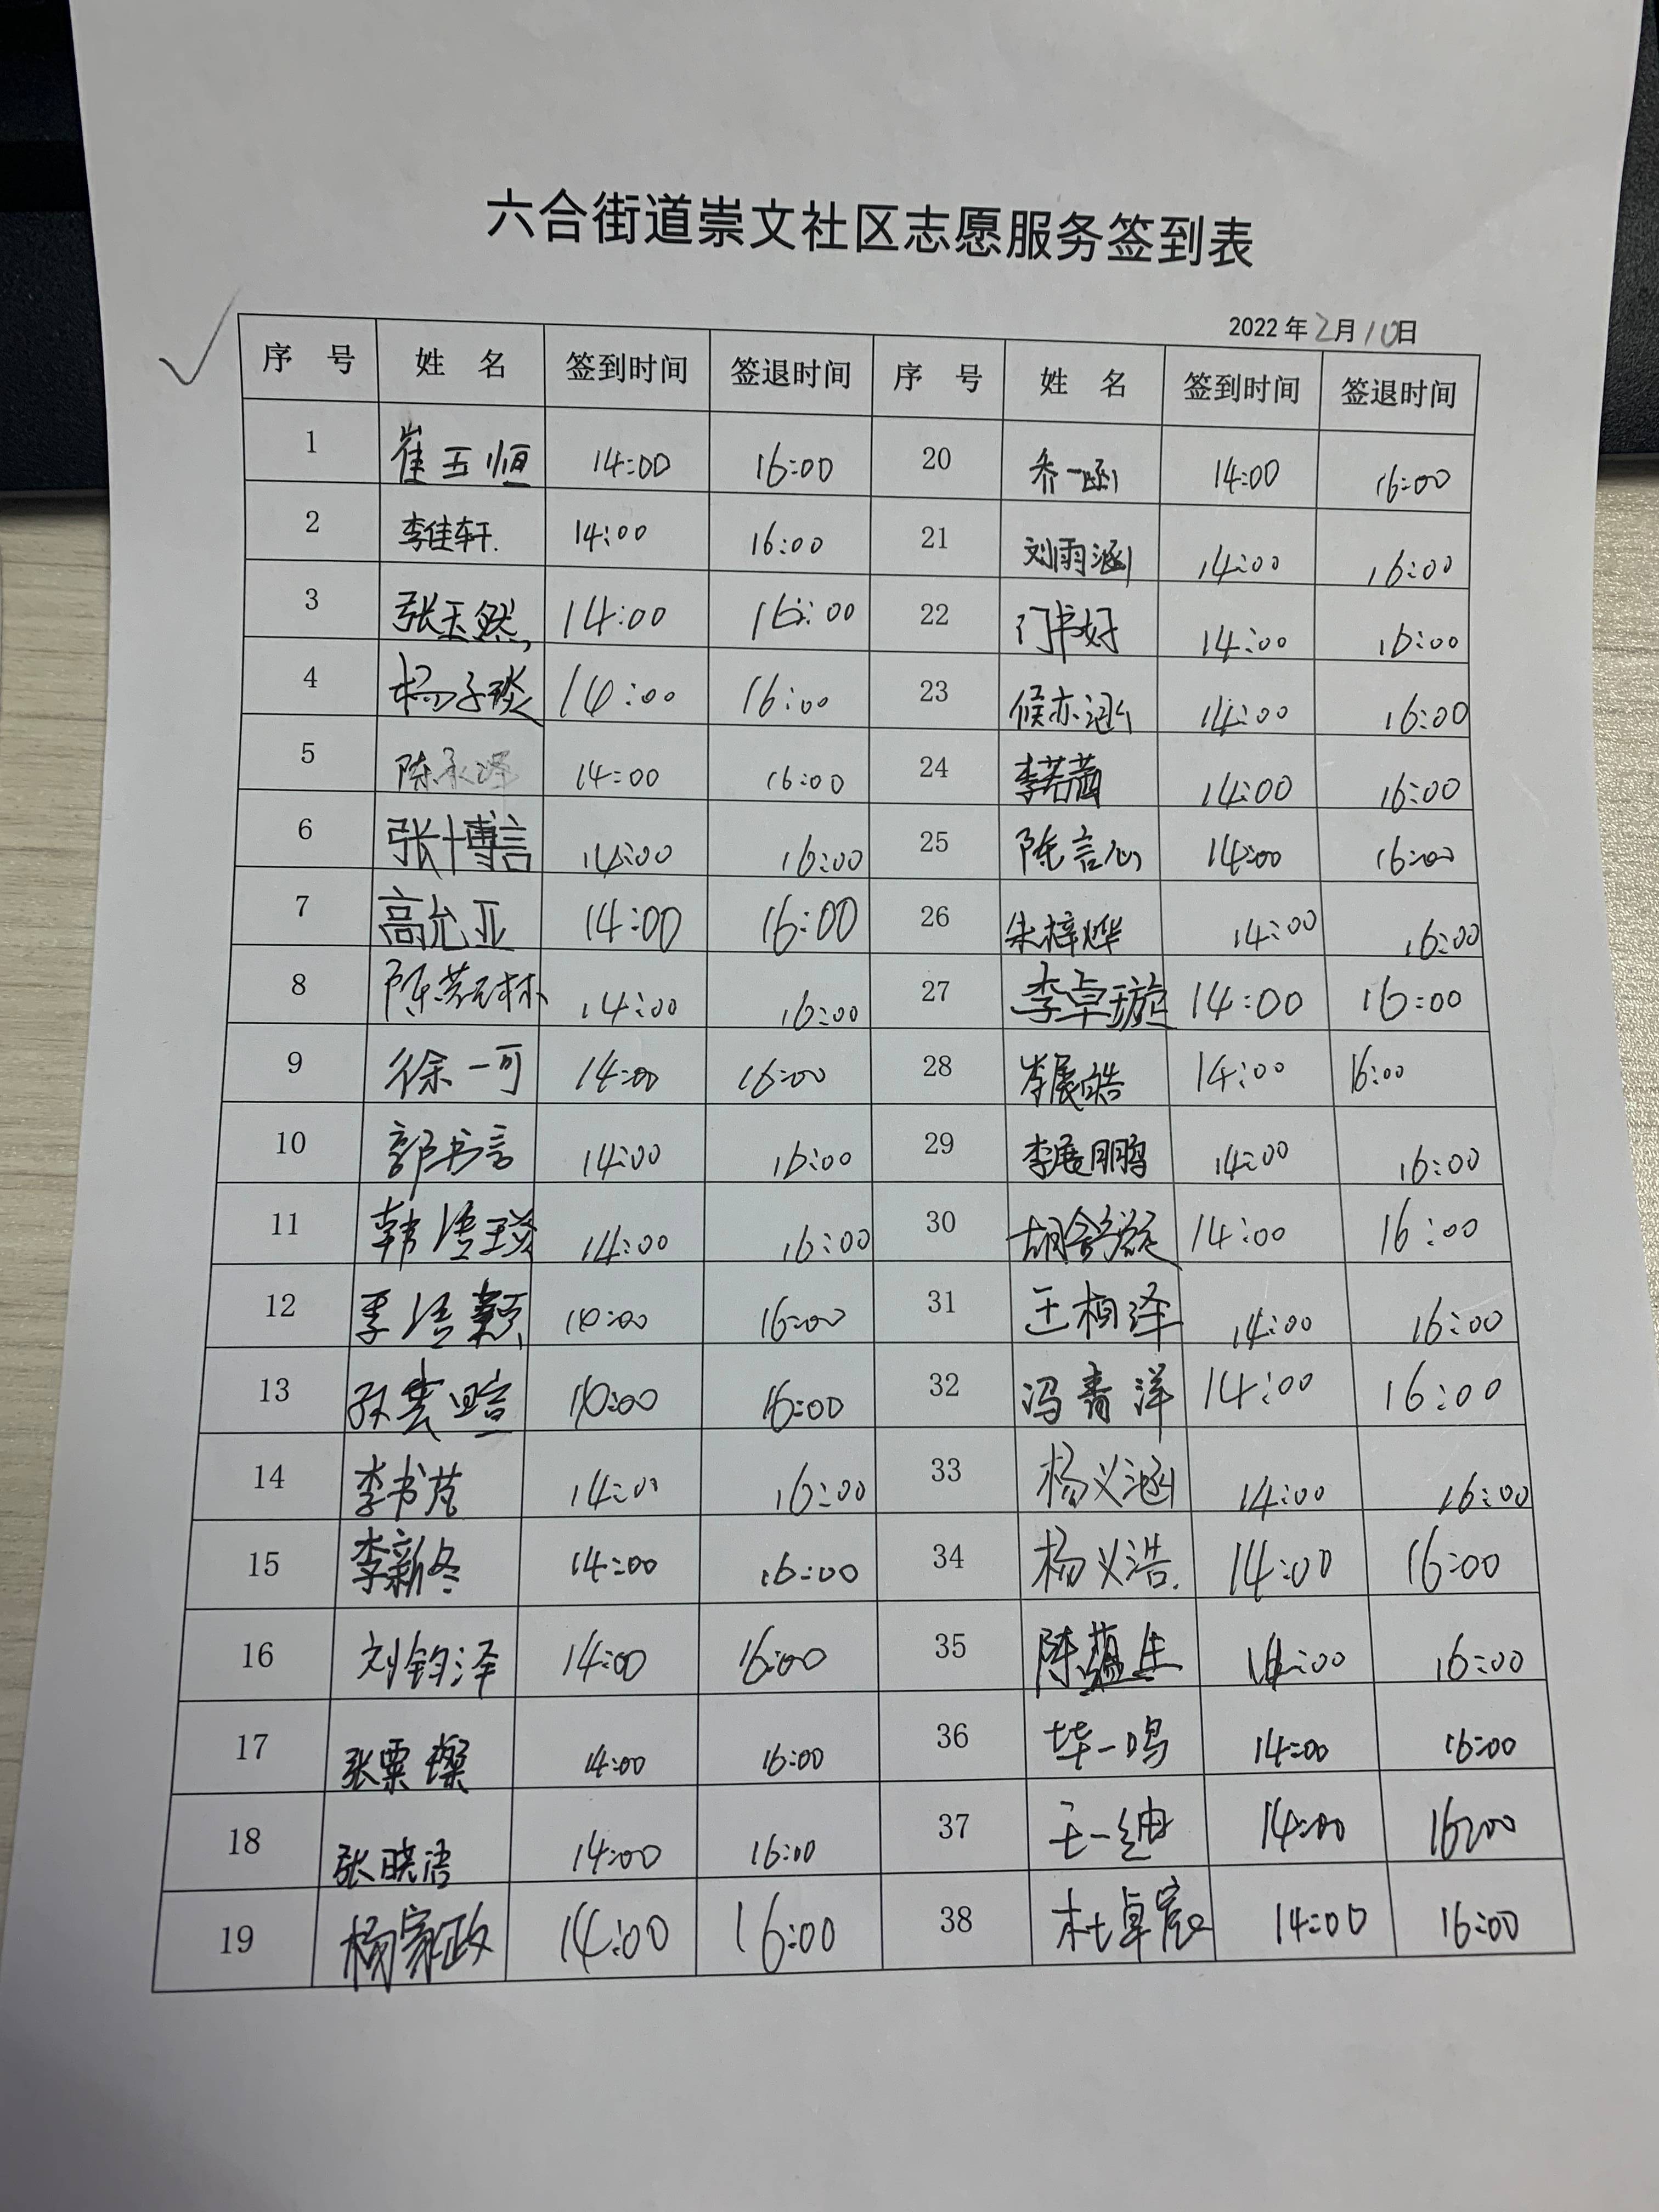 六合街道崇文社区志愿服务签到表
2022年2月10日
序 号 姓 名 签到时间 签退时间 序 号 姓 名 签到时间 签退时间
1 崔玉恒 14:00 16:00 20 乔一函 14:00 16:00
2 李佳轩 14:00 16:00 21 刘雨涵 14:00 16:00
3 张天然 14:00 16:00 22 门书好 14:00 16:00
4 杨子琰 14:00 16:00 23 候亦涵 14:00 16:00
5 陈永泽 14:00 16:00 24 李若菡 14:00 16:00
6 张博言 14:00 16:00 25 陈言心 14:00 16:00
7 高允亚 14:00 16:00 26 朱梓烨 14:00 16:00
8 陈芳林 14:00 16:00 27 李卓璇 14:00 16:00
9 徐一可 14:00 16:00 28 李展皓 14:00 16:00
10 郭书言 14:00 16:00 29 李展鹏 14:00 16:00
11 韩语瑛 14:00 16:00 30 胡舒 14:00 16:00
12 季语颖 14:00 16:00 31 王柏泽 14:00 16:00
13 16:00 32 冯青洋 14:00 16:00
14 李书芃 14:00 16:00 33 杨义涵 14:00 16:00
15 李新冬 14:00 16:00 34 杨义浩 14:00 16:00
16 刘钧泽 14:00 16:00 35 陈蕴生 14:00 16:00
17 张粟璨 14:00 16:00 36 毕一鸣 14:00 16:00
18 张晓语 14:00 16:00 37 王一迪 14:00 16:00
19 杨家政 14:00 16:00 38 杜卓宸 14:00 16:00